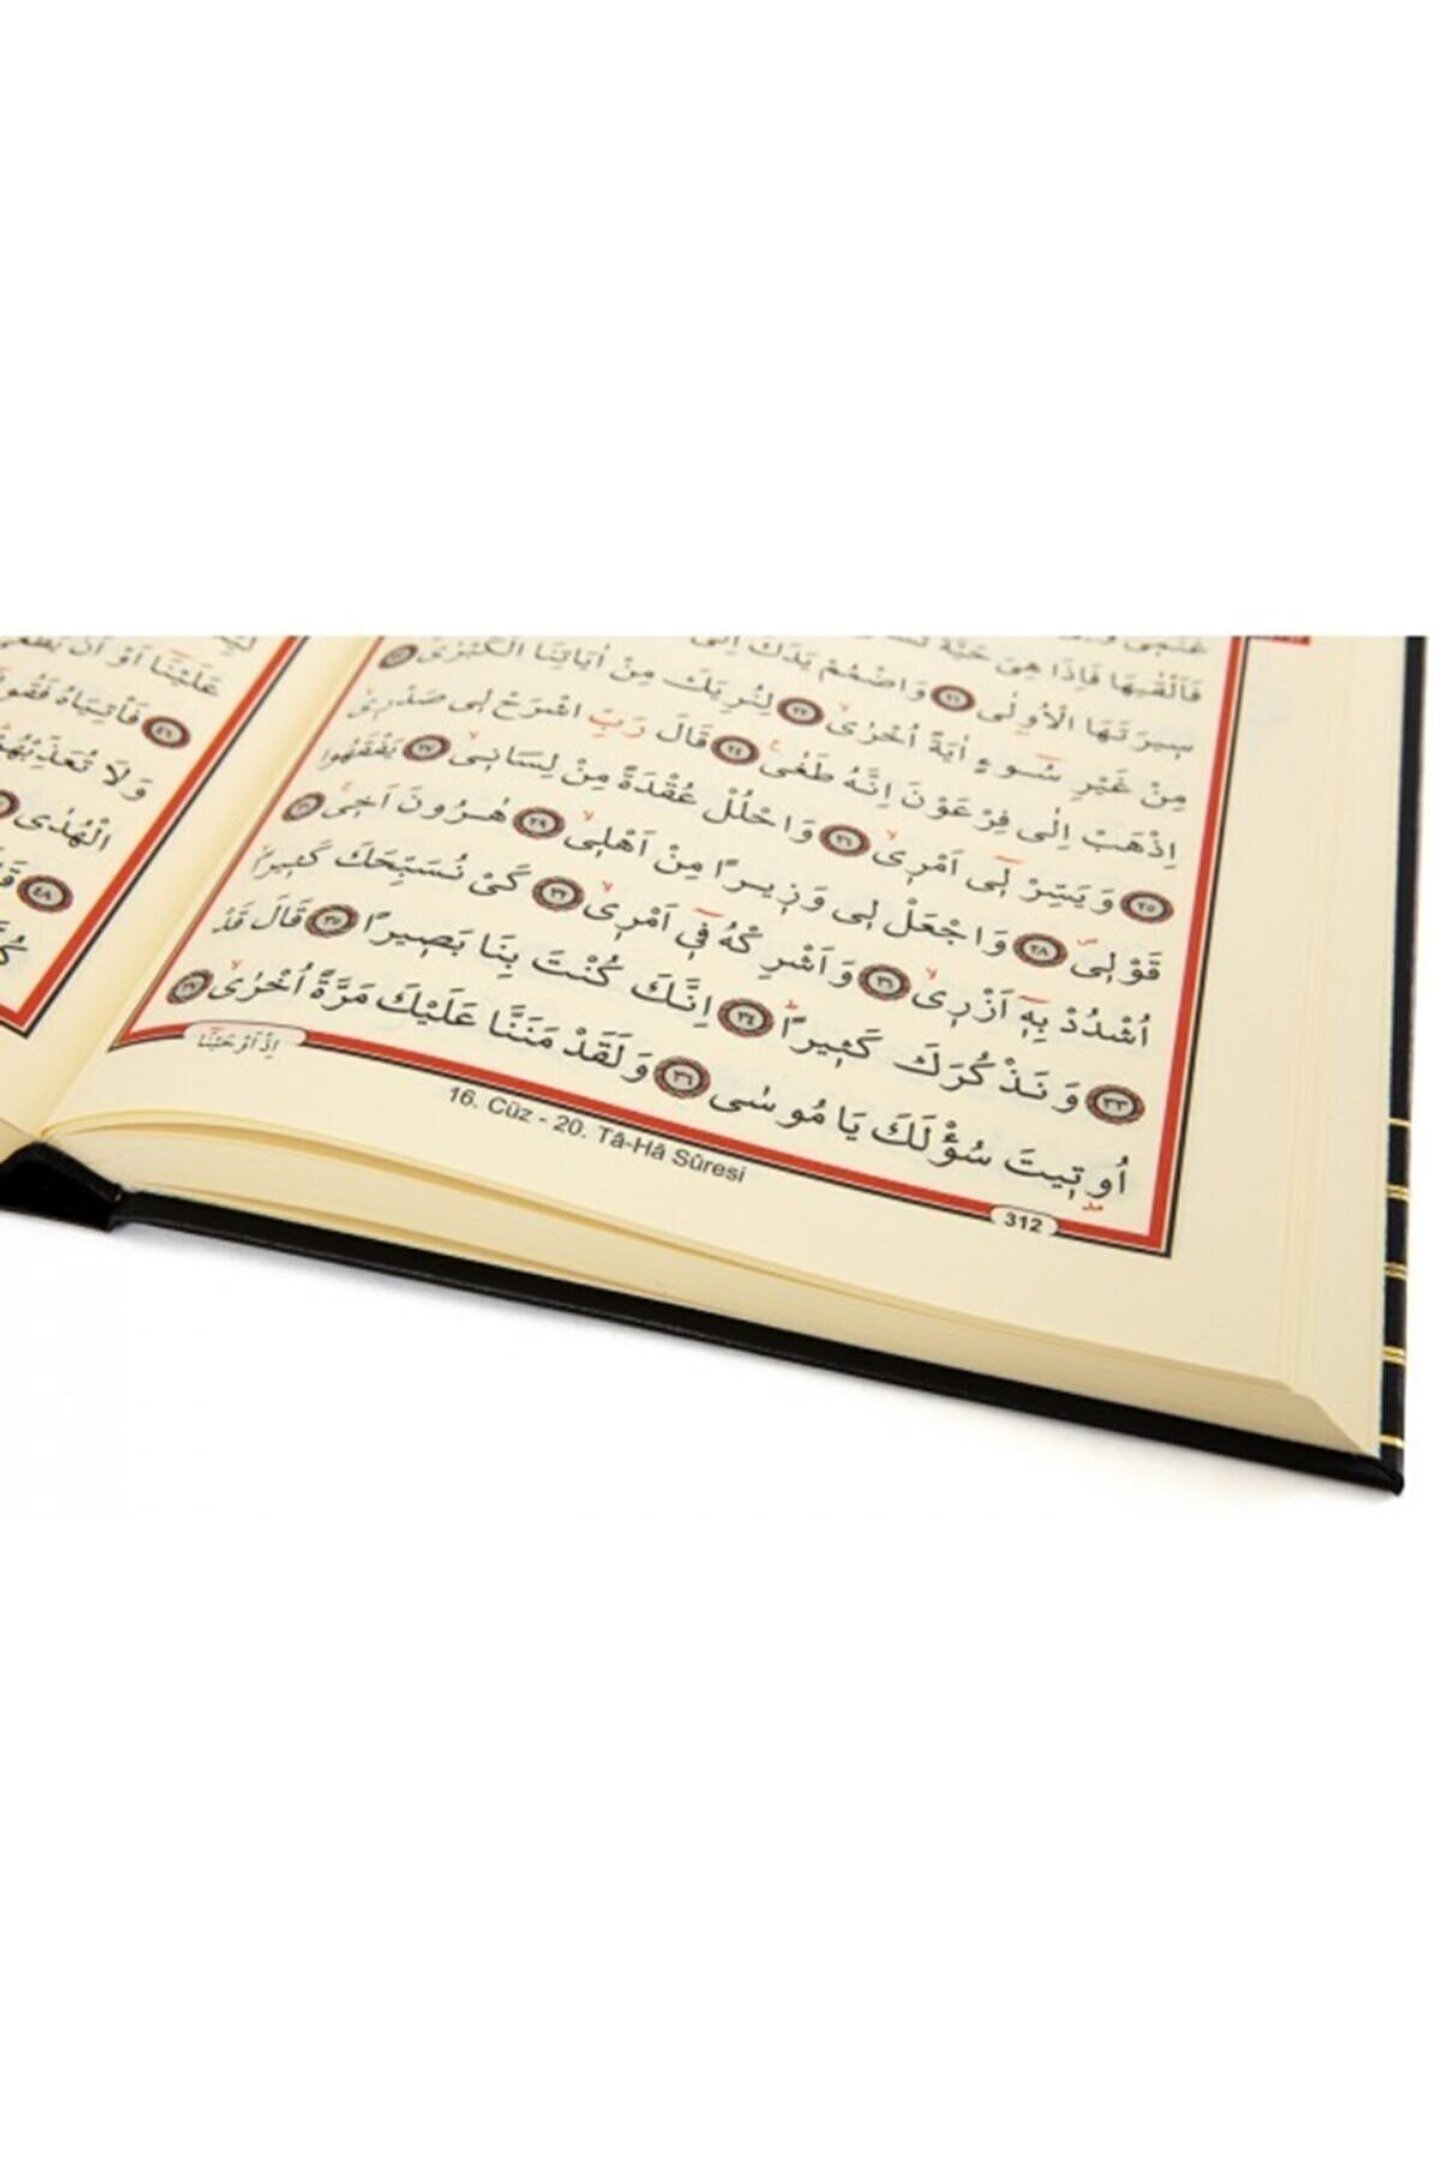 فَاَلْقٰيهَا فَاِذَا هِيَ حَيَّةٌ
سٖيرَتَهَا الْاُولٰى ﴿٢١﴾ وَاضْمُمْ يَدَكَ اِلٰى
مِنْ غَيْرِ سُٓوءٍ اٰيَةً اُخْرٰىۙ ﴿٢٢﴾ لِنُرِيَكَ مِنْ اٰيَاتِنَا الْكُبْرٰىۚ ﴿٢٣﴾
اِذْهَبْ اِلٰى فِرْعَوْنَ اِنَّهُ طَغٰىۚ ﴿٢٤﴾ قَالَ رَبِّ اشْرَحْ لٖى صَدْرٖىۙ
﴿٢٥﴾ وَيَسِّرْ لٖٓى اَمْرٖىۙ ﴿٢٦﴾ وَاحْلُلْ عُقْدَةً مِنْ لِسَانٖىۙ ﴿٢٧﴾ يَفْقَهُوا
قَوْلٖىۖ ﴿٢٨﴾ وَاجْعَلْ لٖى وَزٖيرًا مِنْ اَهْلٖىۙ ﴿٢٩﴾ هٰرُونَ اَخٖىۚ ﴿٣٠﴾
اُشْدُدْ بِهٖٓ اَزْرٖىۙ ﴿٣١﴾ وَاَشْرِكْهُ فٖٓى اَمْرٖىۙ ﴿٣٢﴾ كَىْ نُسَبِّحَكَ كَثٖيرًاۙ
﴿٣٣﴾ وَنَذْكُرَكَ كَثٖيرًاۜ ﴿٣٤﴾ اِنَّكَ كُنْتَ بِنَا بَصٖيرًا ﴿٣٥﴾ قَالَ قَدْ
اُوتٖيتَ سُؤْلَكَ يَا مُوسٰى ﴿٣٦﴾ وَلَقَدْ مَنَنَّا عَلَيْكَ مَرَّةً اُخْرٰىۙ ﴿٣٧﴾
اِذْ اَوْحَيْنَا
312
16. Cüz - 20. Tâ-Hâ Sûresi
عَلَيْنَٓا اَوْ اَنْ يَطْغٰى
﴿٤٦﴾ فَأْتِيَاهُ فَقُولَٓا
وَلَا تُعَذِّبْهُمْ
الْهُدٰى
﴿٤٨﴾